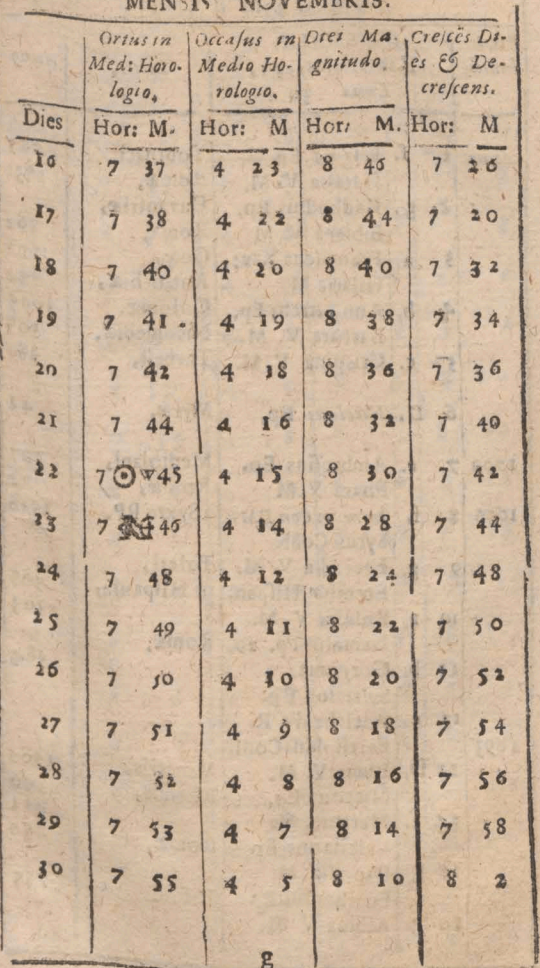 MENSIS NOVEMBRIS.
Ortus in Occasus in Diei Ma- Cresc̃es Di-
Med: Horo- Medio Ho- gnitudo. es & De-
logio. rologio. crescens.
Dies Hor: M. Hor: M Hor: M. Hor: M
16 7 37 4 23 8 46 7 26
17 7 38 4 22 8 44 7 20
18 7 40 4 20 8 40 7 32
19 7 41. 4 19 8 38 7 34
20 7 42 4 18 8 36 7 36
21 7 44 4 16 8 32 7 40
22 7 ☉ 45 4 15 8 30 7 42
23 7 46 4 14 8 28 7 44
24 7 48 4 12 8 24 7 48
25 7 49 4 11 8 22 7 50
26 7 50 4 10 8 20 7 52
27 7 51 4 9 8 18 7 54
28 7 52 4 8 8 16 7 56
29 7 53 4 7 8 14 7 58
30 7 55 4 5 8 10 8 2
g